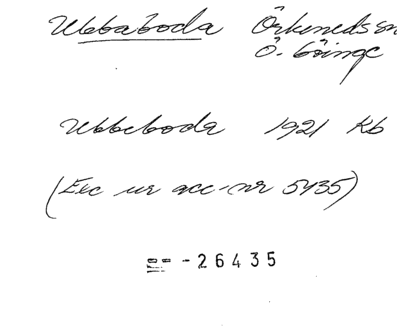 Ubbaboda Örkeneds sn
Ö. Göinge
Ubbeboda 1921 Kb
(Exc ur acc-nr 5435)
-26435